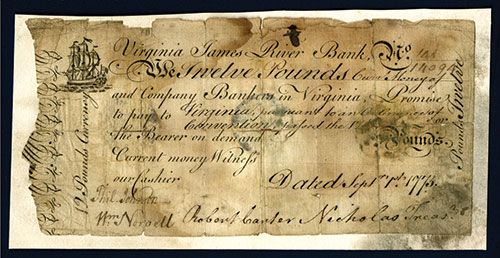 Virginia James River Bank, No
We Twelve Pounds Curr. Money of
and Company Bankers in Virginia, Promise
to pay to Virginia, pursuant to an Ordinance of
Convention, passed the
The Bearer on demand Pounds.
Current money Witness
our Cashier
Dated Sept. 1st. 1775.
Phil. Johnson
Wm Norvell Robert Carter Nicholas Treasr.
12 Pounds Currency
Pounds Twelve